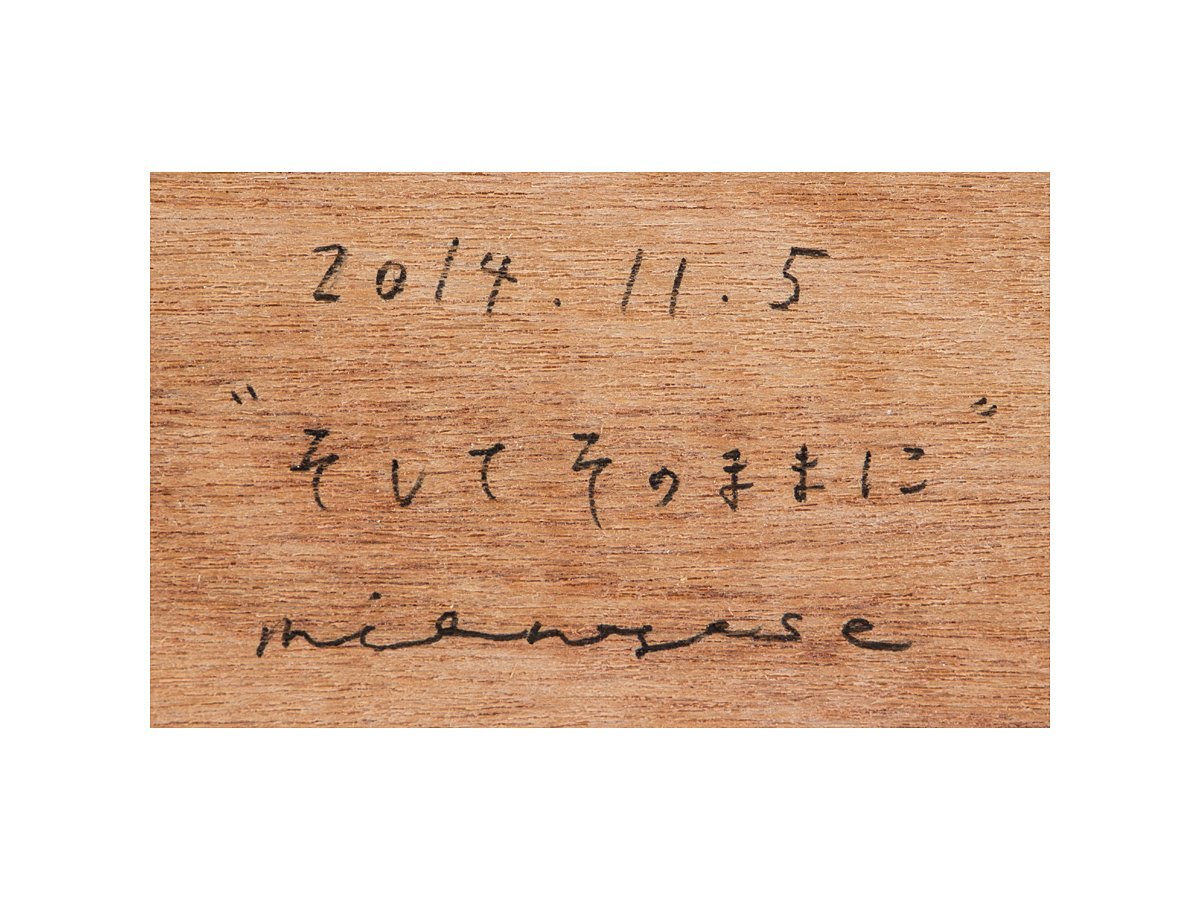 2014.11.5
"そしてそのままに"